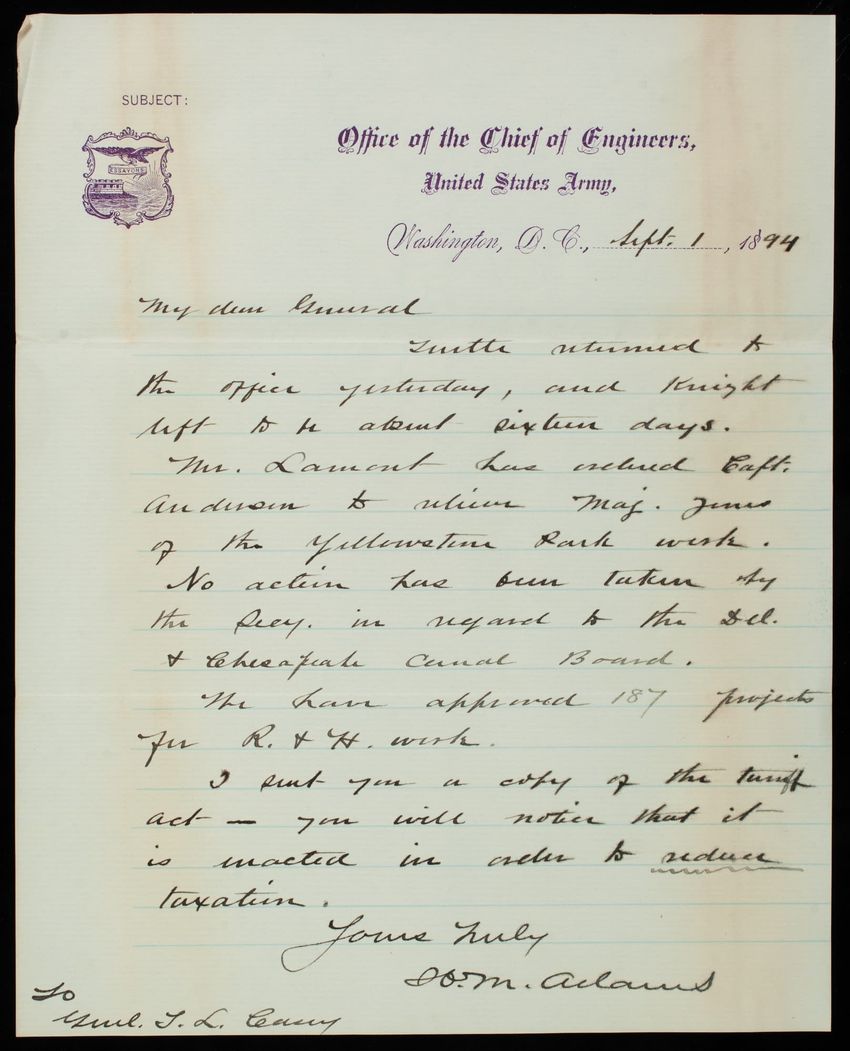 SUBJECT:
ESSAYONS
Office of the Chief of Engineers,
United States Army,
Washington, D. C., Sept. 1, 1894
My dear General
Turtle returned to
the office yesterday, and Knight
left to be absent sixteen days.
Mr. Lamont has ordered Capt.
Anderson to relieve Maj. Jones
of the Yellowstone Park work.
No action has been taken by
the Secy. in regard to the Del.
& Chesapeake Canal Board.
We have approved 187 projects
for R. & H. work.
I sent you a copy of the tariff
act — you will notice that it
is enacted in order to reduce
taxation.
Yours truly
M. Adams
To
Genl. T. L. Casey